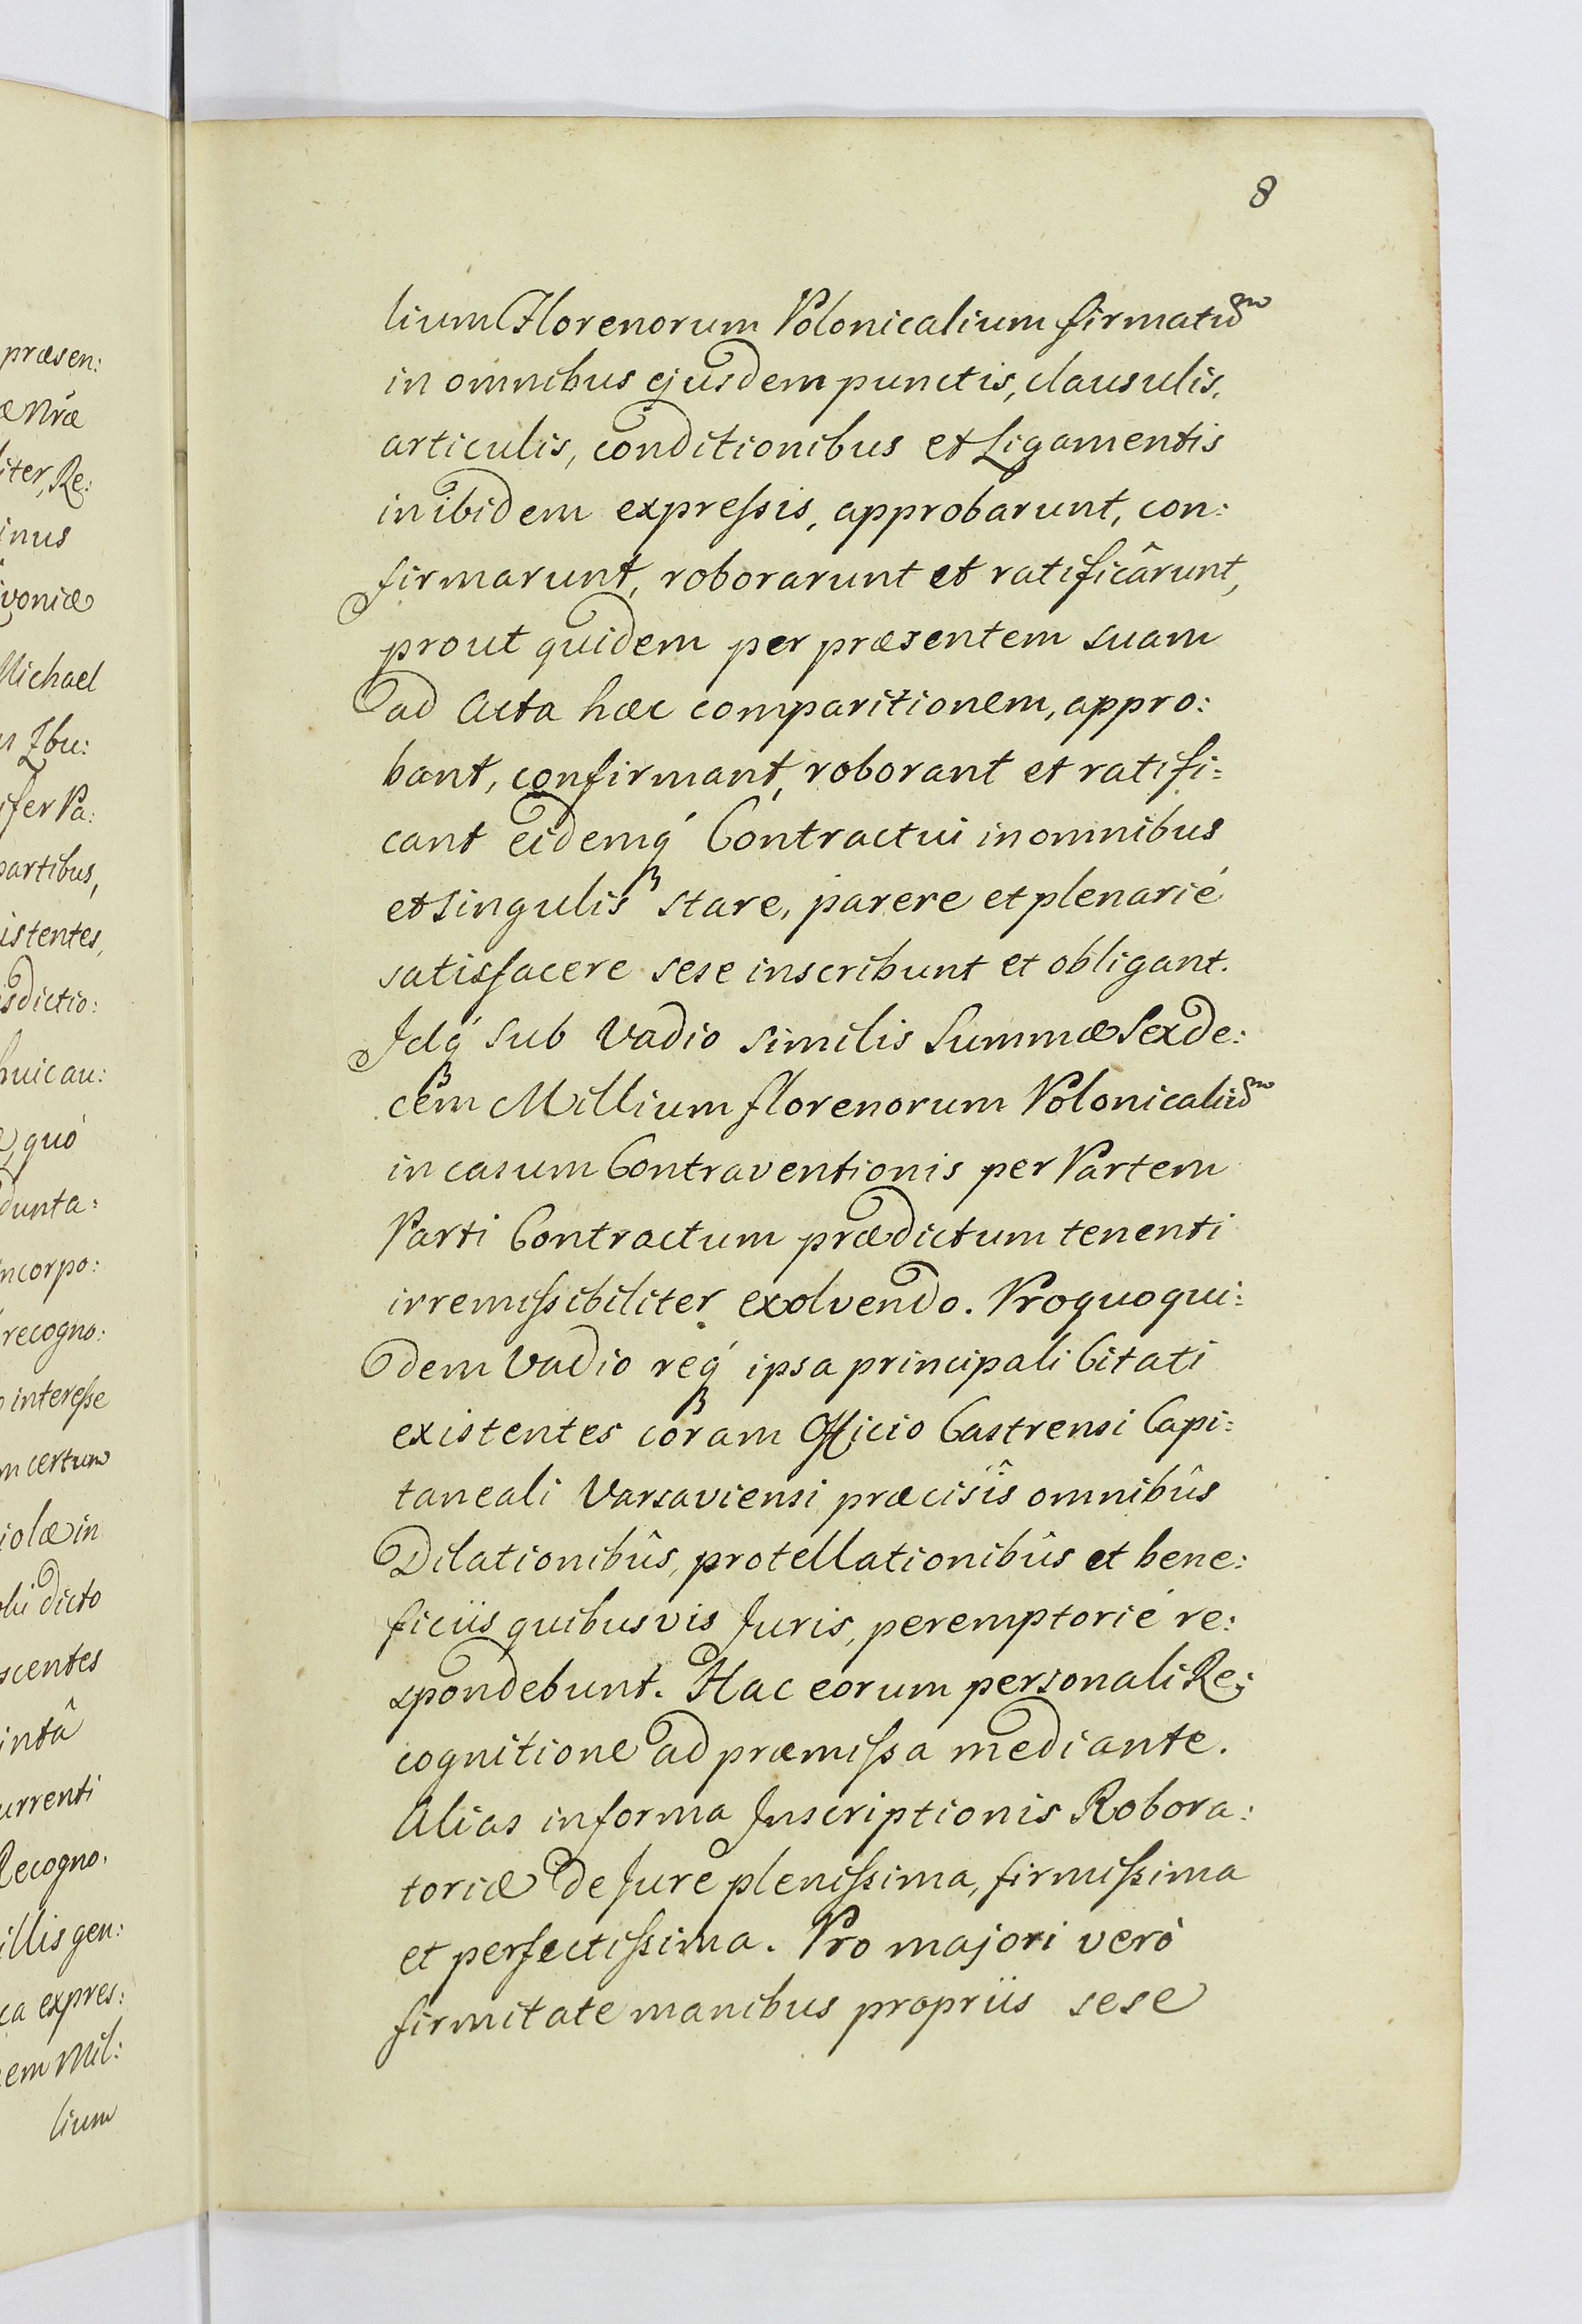 præsen:
æ nræ
liter, Re:
inus
ivoniæ
Michael
n Zbu:
ifer Pa:
partibus,
istentes,
isdictio:
huic au:
e, quó
dunta:
incorpo:
recogno:
interesse
m certum
iolæ in
ohi dicto
scentes
intâ
urrenti
Recogno.
illis gen:
ca expres:
em Mil:
lium
8
lium Florenorum Polonicalium firmatum
in omnibus ejusdem punctis, clausulis,
articulis, conditionibus et Ligamentis
inibidem expressis, approbarunt, con:
firmarunt, roborarunt et ratificârunt,
prout quidem per præsentem suam
ad Acta hæc comparitionem, appro:
bant, confirmant, roborant et ratifi:
cant eidemq́ Contractui in omnibus
et singulis stare, parere et plenarié
satisfacere sese inscribunt et obligant.
Idq́ sub Vadio similis Summæ Sexde:
cem Millium florenorum Polonicalium
in casum Contraventionis per Partem
Parti Contractum prædictum tenenti
irremissibiliter exolvendo. Pro quo qui:
dem Vadio req́ ipsa principali Citati
existentes coram Officio Castrensi Capi:
taneali Varsaviensi præcisîs omnibûs
Dilationibûs, protellationibûs et bene:
ficiis quibusvis Juris, peremptorié re:
spondebunt. Hac eorum personali Re:
cognitione ad præmissa mediante.
Alias in forma Inscriptionis Robora:
toriæ de Jure plenissima, firmissima
et perfectissima. Pro majori verò
firmitate manibus propriis sese